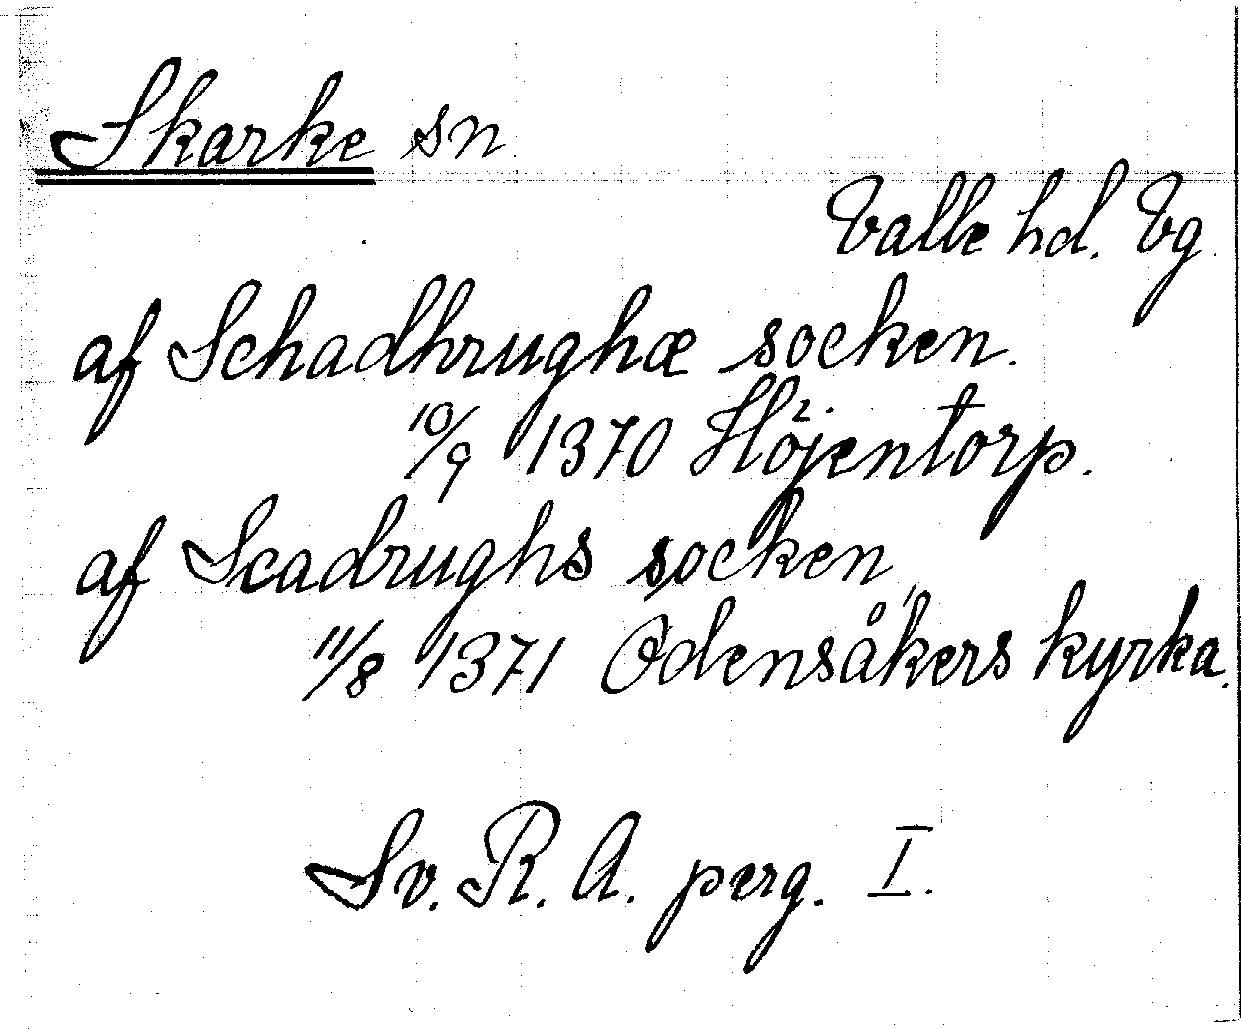 Skarke sn
Valle hd. Vg.
af Schadhrughæ socken.
10/9 1370 Höjentorp.
af Scadrughs socken,
11/8 1371 Odensåkers kyrka.
Sv. R. A. perg. I.